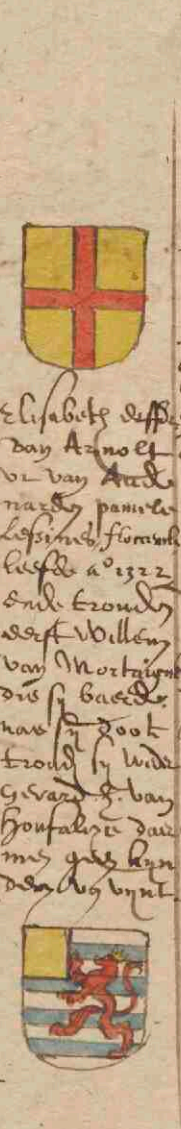 Elisabeth deffde
van Arnolt
vr van Aude
narden pamele
Lessines, flocamle
leefde aº 1322
ende troude
eerst Willem
van Mortaigne
die sy baerde,
nae sy doot
troud sy wider
Gerard h. van
Houfalize daer
men geen kyn
den vynt